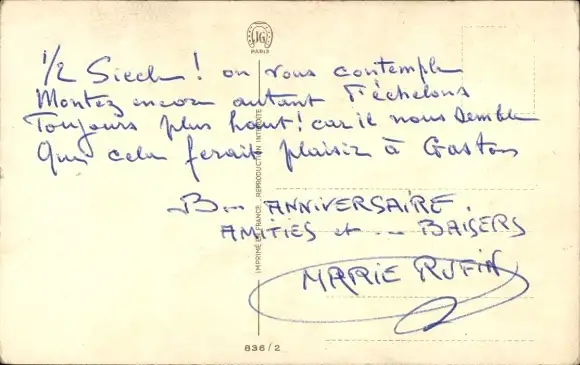 JG
PARIS
1/2 Siecle ! on vous contemple
Montez encore autant d'échelons
Toujours plus haut ! car il nous semble
Que cela ferait plaisir à Gaston
Bon ANNIVERSAIRE.
AMITIÉS et ... BAISERS
MARIE RUFIN
IMPRIMÉ EN FRANCE - REPRODUCTION INTERDITE
836/2